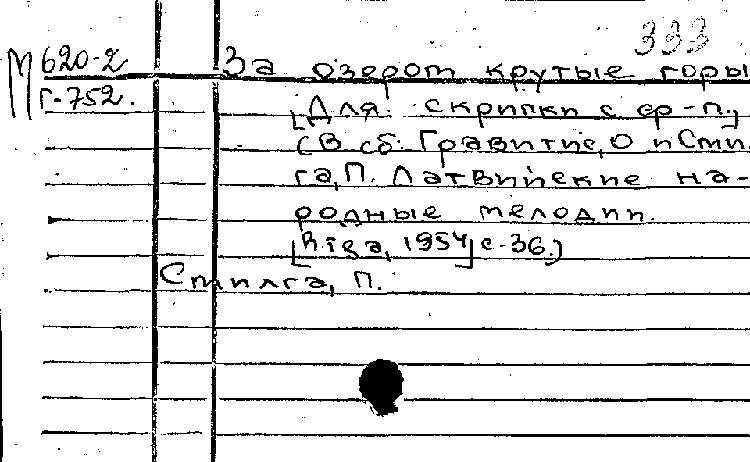 333
М 620-2 За озером крутые горы
Г-752. [Для скрипки с ф-п.]
(В сб. Гравитис, О и Сти
га, П. Латвийские на-
родные мелодии.
[Riga, 1954] с. 36.)
Стилга, П.